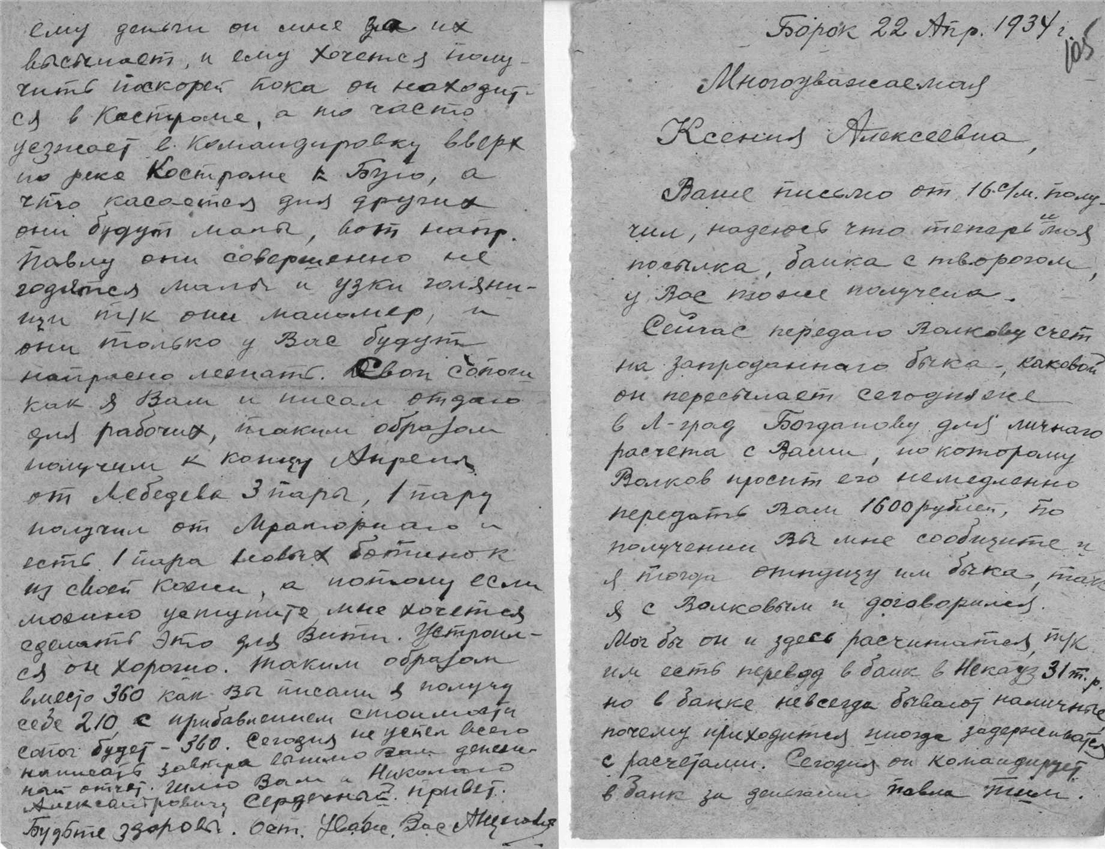 ему деньги он мне за их
высылает, и ему хочется полу-
чить поскорей пока он находит-
ся в Костроме, а то часто
уезжает в командировку вверх
по реке Костроме к Бую, а
что касается для других
они будут малы, вот напр.
Павлу они совершенно не
годятся малы и узки голяни-
щи т/к они маломер, и
они только у Вас будут
напрасно лежать. Свои сапоги
как я Вам и писал отдаю
для рабочих, таким образом
получим к концу Апреля
от Лебедева 3 пары, 1 пару
получил от и
есть 1 пара новых ботинок
из своей кожи, а потому если
можно уступите мне хочется
сделать это для Вити. Устроил-
ся он хорошо. Таким образом
вместо 360 как Вы писали я получу
себе 210 с прибавлением стоимости
сапог будет - 360. Сегодня не успел всего
написать завтра вышлю Вам денеж-
ный отчет. Шлю Вам и Николаю
Александровичу Сердечный привет.
Будьте здоровы. Ост. Уваж. Вас
Борок 22 Апр. 1934 г.
105
Многоуважаемая
Ксения Алексеевна,
Ваше письмо от 16 с/м. полу-
чил, надеюсь что теперь и моя
посылка, банка с творогом,
у Вас тоже получена.
Сейчас передаю Волкову счет
на запроданного быка, каковой
он пересылает сегодня же
в Л-град Богданову для личного
расчета с Вами, по которому
Волков просит его немедленно
передать Вам 1600 рублей, по
получении Вы мне сообщите и
я тогда отпущу им быка, так
я с Волковым и договорился.
Мог бы он и здесь расчитатся, т/к
им есть перевод в банк в Некоуз 31 т.р.
но в банке невсегда бывают наличные
почему приходится иногда задерживатся
с расчетами. Сегодня он командирует
в банк за деньгами Павла Тим.